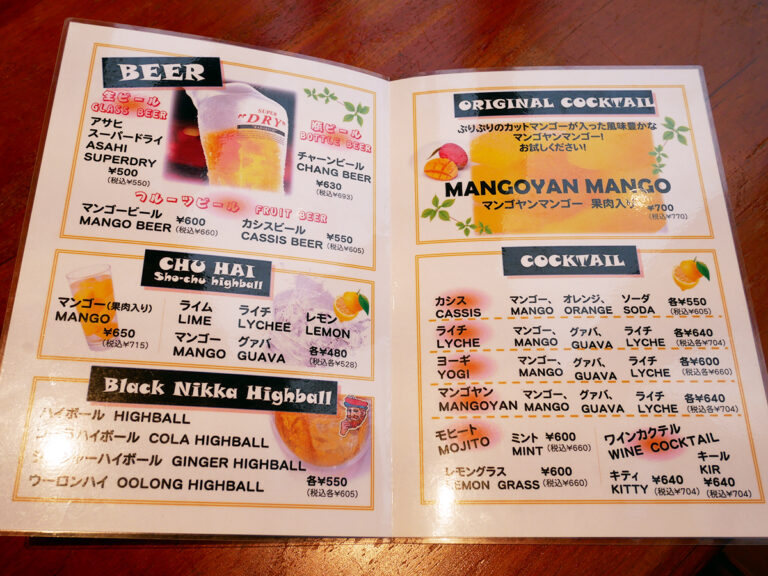 BEER
生ビール
GLASS BEER
アサヒ
スーパードライ
ASAHI
SUPERDRY
¥500
(税込¥550)
SUPER
"DRY"
瓶ビール
BOTTLE BEER
チャーンビール
CHANG BEER
¥630
(税込¥693)
フルーツビール FRUIT BEER
マンゴービール ¥600
MANGO BEER (税込¥660)
カシスビール ¥550
CASSIS BEER (税込¥605)
CHU HAI
Sho-chu highball
マンゴー(果肉入り)
MANGO
¥650
(税込¥715)
ライム ライチ レモン
LIME LYCHEE LEMON
マンゴー グァバ 各¥480
MANGO GUAVA (税込各¥528)
Black Nikka Highball
ハイボール HIGHBALL
ハイボール COLA HIGHBALL
ハイボール GINGER HIGHBALL
ウーロンハイ OOLONG HIGHBALL
各¥550
(税込各¥605)
ORIGINAL COCKTAIL
ぷりぷりのカットマンゴーが入った風味豊かな
マンゴヤンマンゴー!
お試しください!
MANGOYAN MANGO
マンゴヤンマンゴー 果肉入り ¥700
(税込¥770)
COCKTAIL
カシス マンゴー、 オレンジ、 ソーダ 各¥550
CASSIS MANGO ORANGE SODA (税込各¥605)
ライチ マンゴー、 グァバ、 ライチ 各¥640
LYCHE MANGO GUAVA LYCHE (税込各¥704)
ヨーギ マンゴー、 グァバ、 ライチ 各¥600
YOGI MANGO GUAVA LYCHE (税込各¥660)
マンゴヤン マンゴー、 グァバ、 ライチ 各¥640
MANGOYAN MANGO GUAVA LYCHE (税込各¥704)
モヒート ミント ¥600
MOJITO MINT (税込¥660)
レモングラス ¥600
LEMON GRASS (税込¥660)
ワインカクテル
WINE COCKTAIL
キティ ¥640
KITTY (税込¥704)
キール
KIR
¥640
(税込¥704)